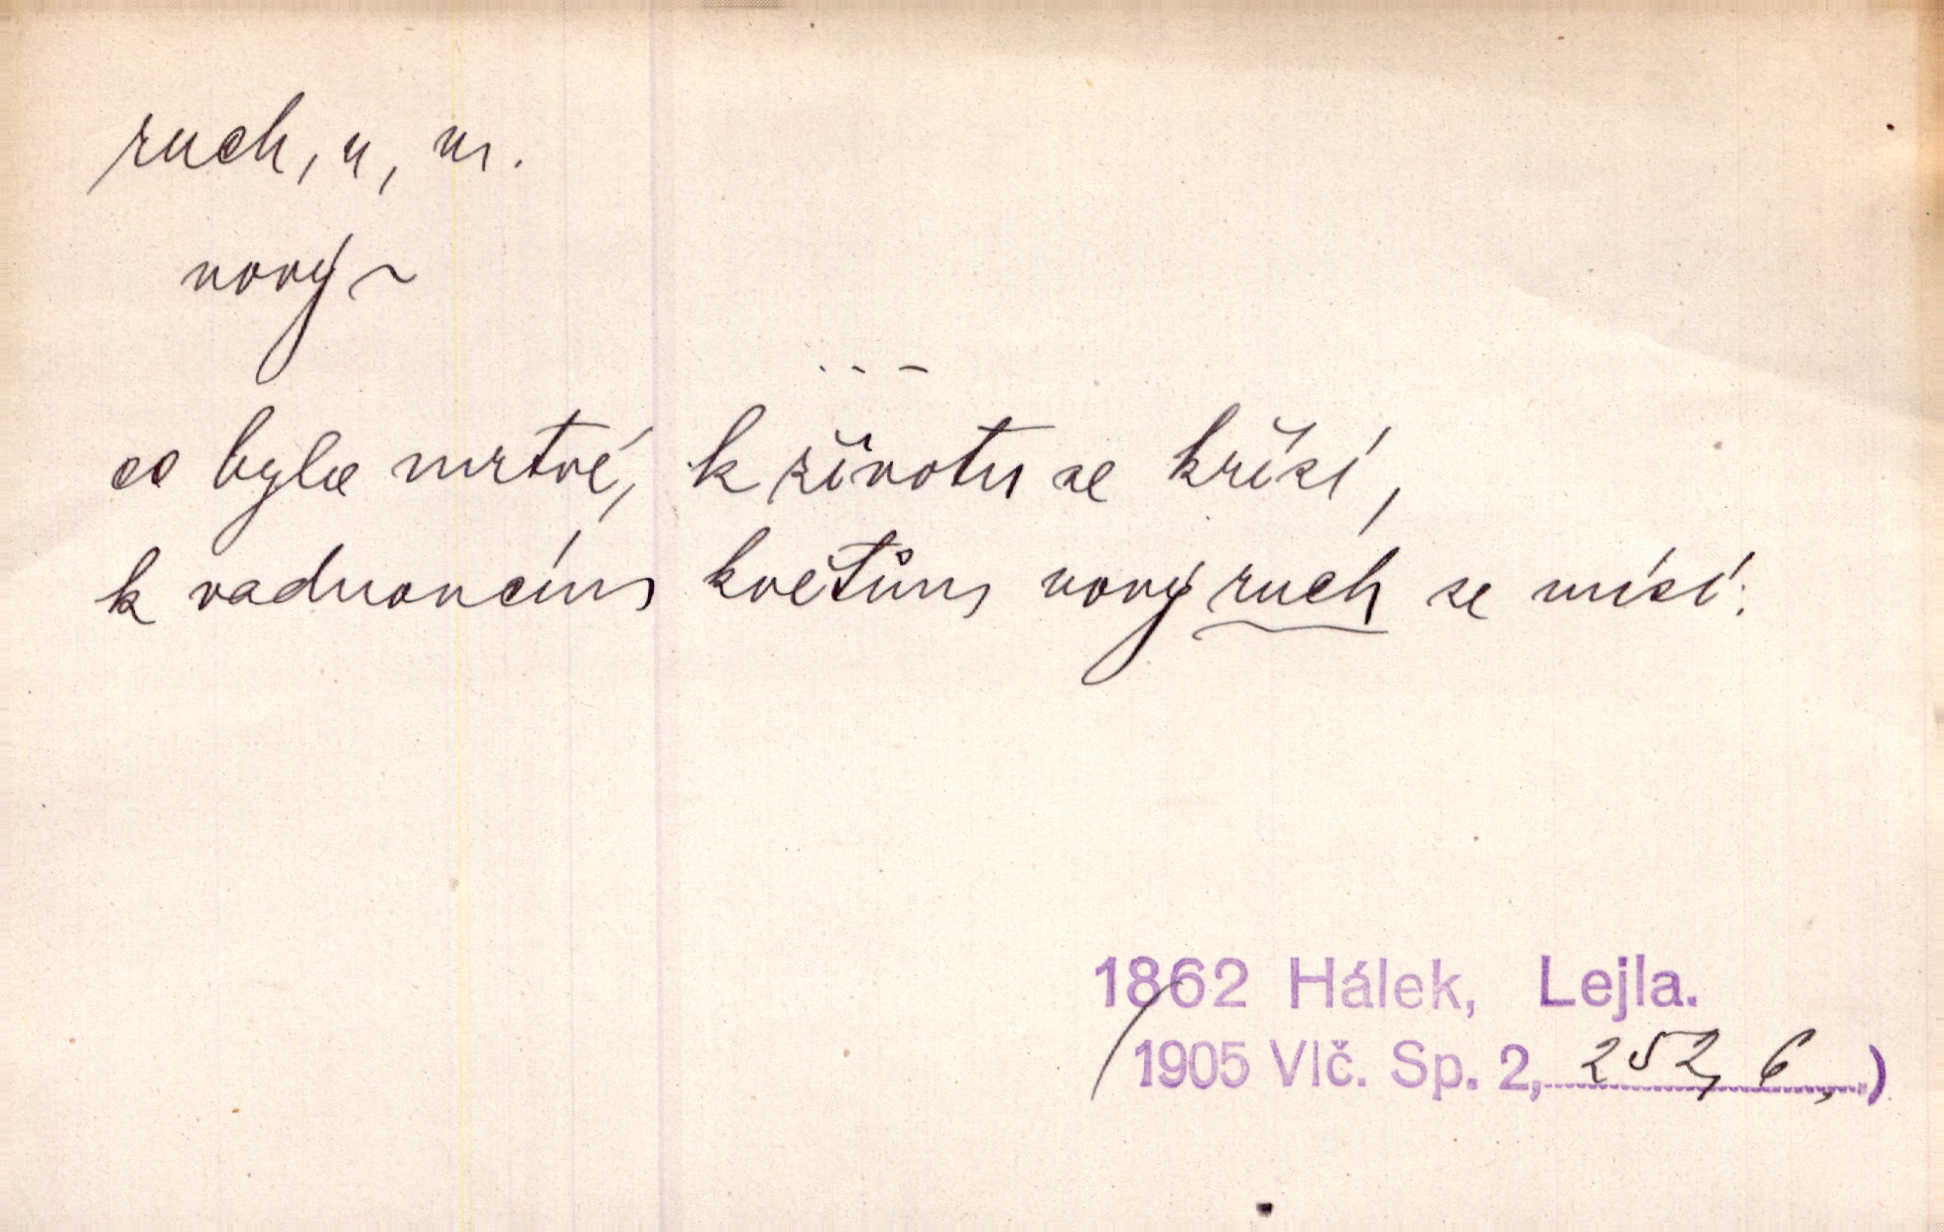 ruch, u, m.
nový ~
. . –
co bylo mrtvé, k životu se křísí,
k vadnoucím květům nový ruch se mísí:
1862 Hálek, Lejla.
(1905 Vlč. Sp. 2, 252, 6,)